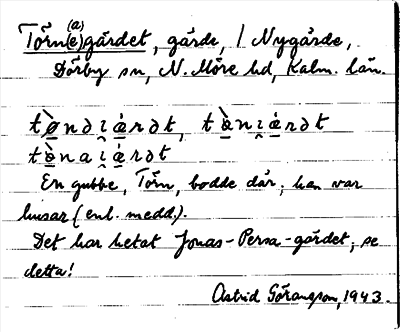 Törn(e)(a)gärdet, gärde, / Nygärde,
Dörby sn, N. Möre hd, Kalm. län.
En gubbe, Törn, bodde där; han var
husar (enl. medd.).
Det har hetat Jonas-Persa-gärdet, se
detta!
Astrid Göransson, 1943.